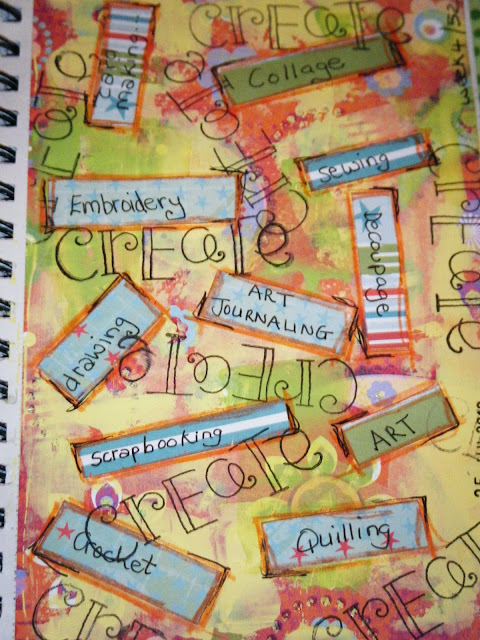 CREATE
card
making...
Collage
week 4/52
CREATE
CREATE
CREATE
sewing
Embroidery
CREATE
Decoupage
CREATE
ART
JOURNALING
drawing
CREATE
scrapbooking
ART
CREATE
Crocket
Quilling
CREATE
CREATE